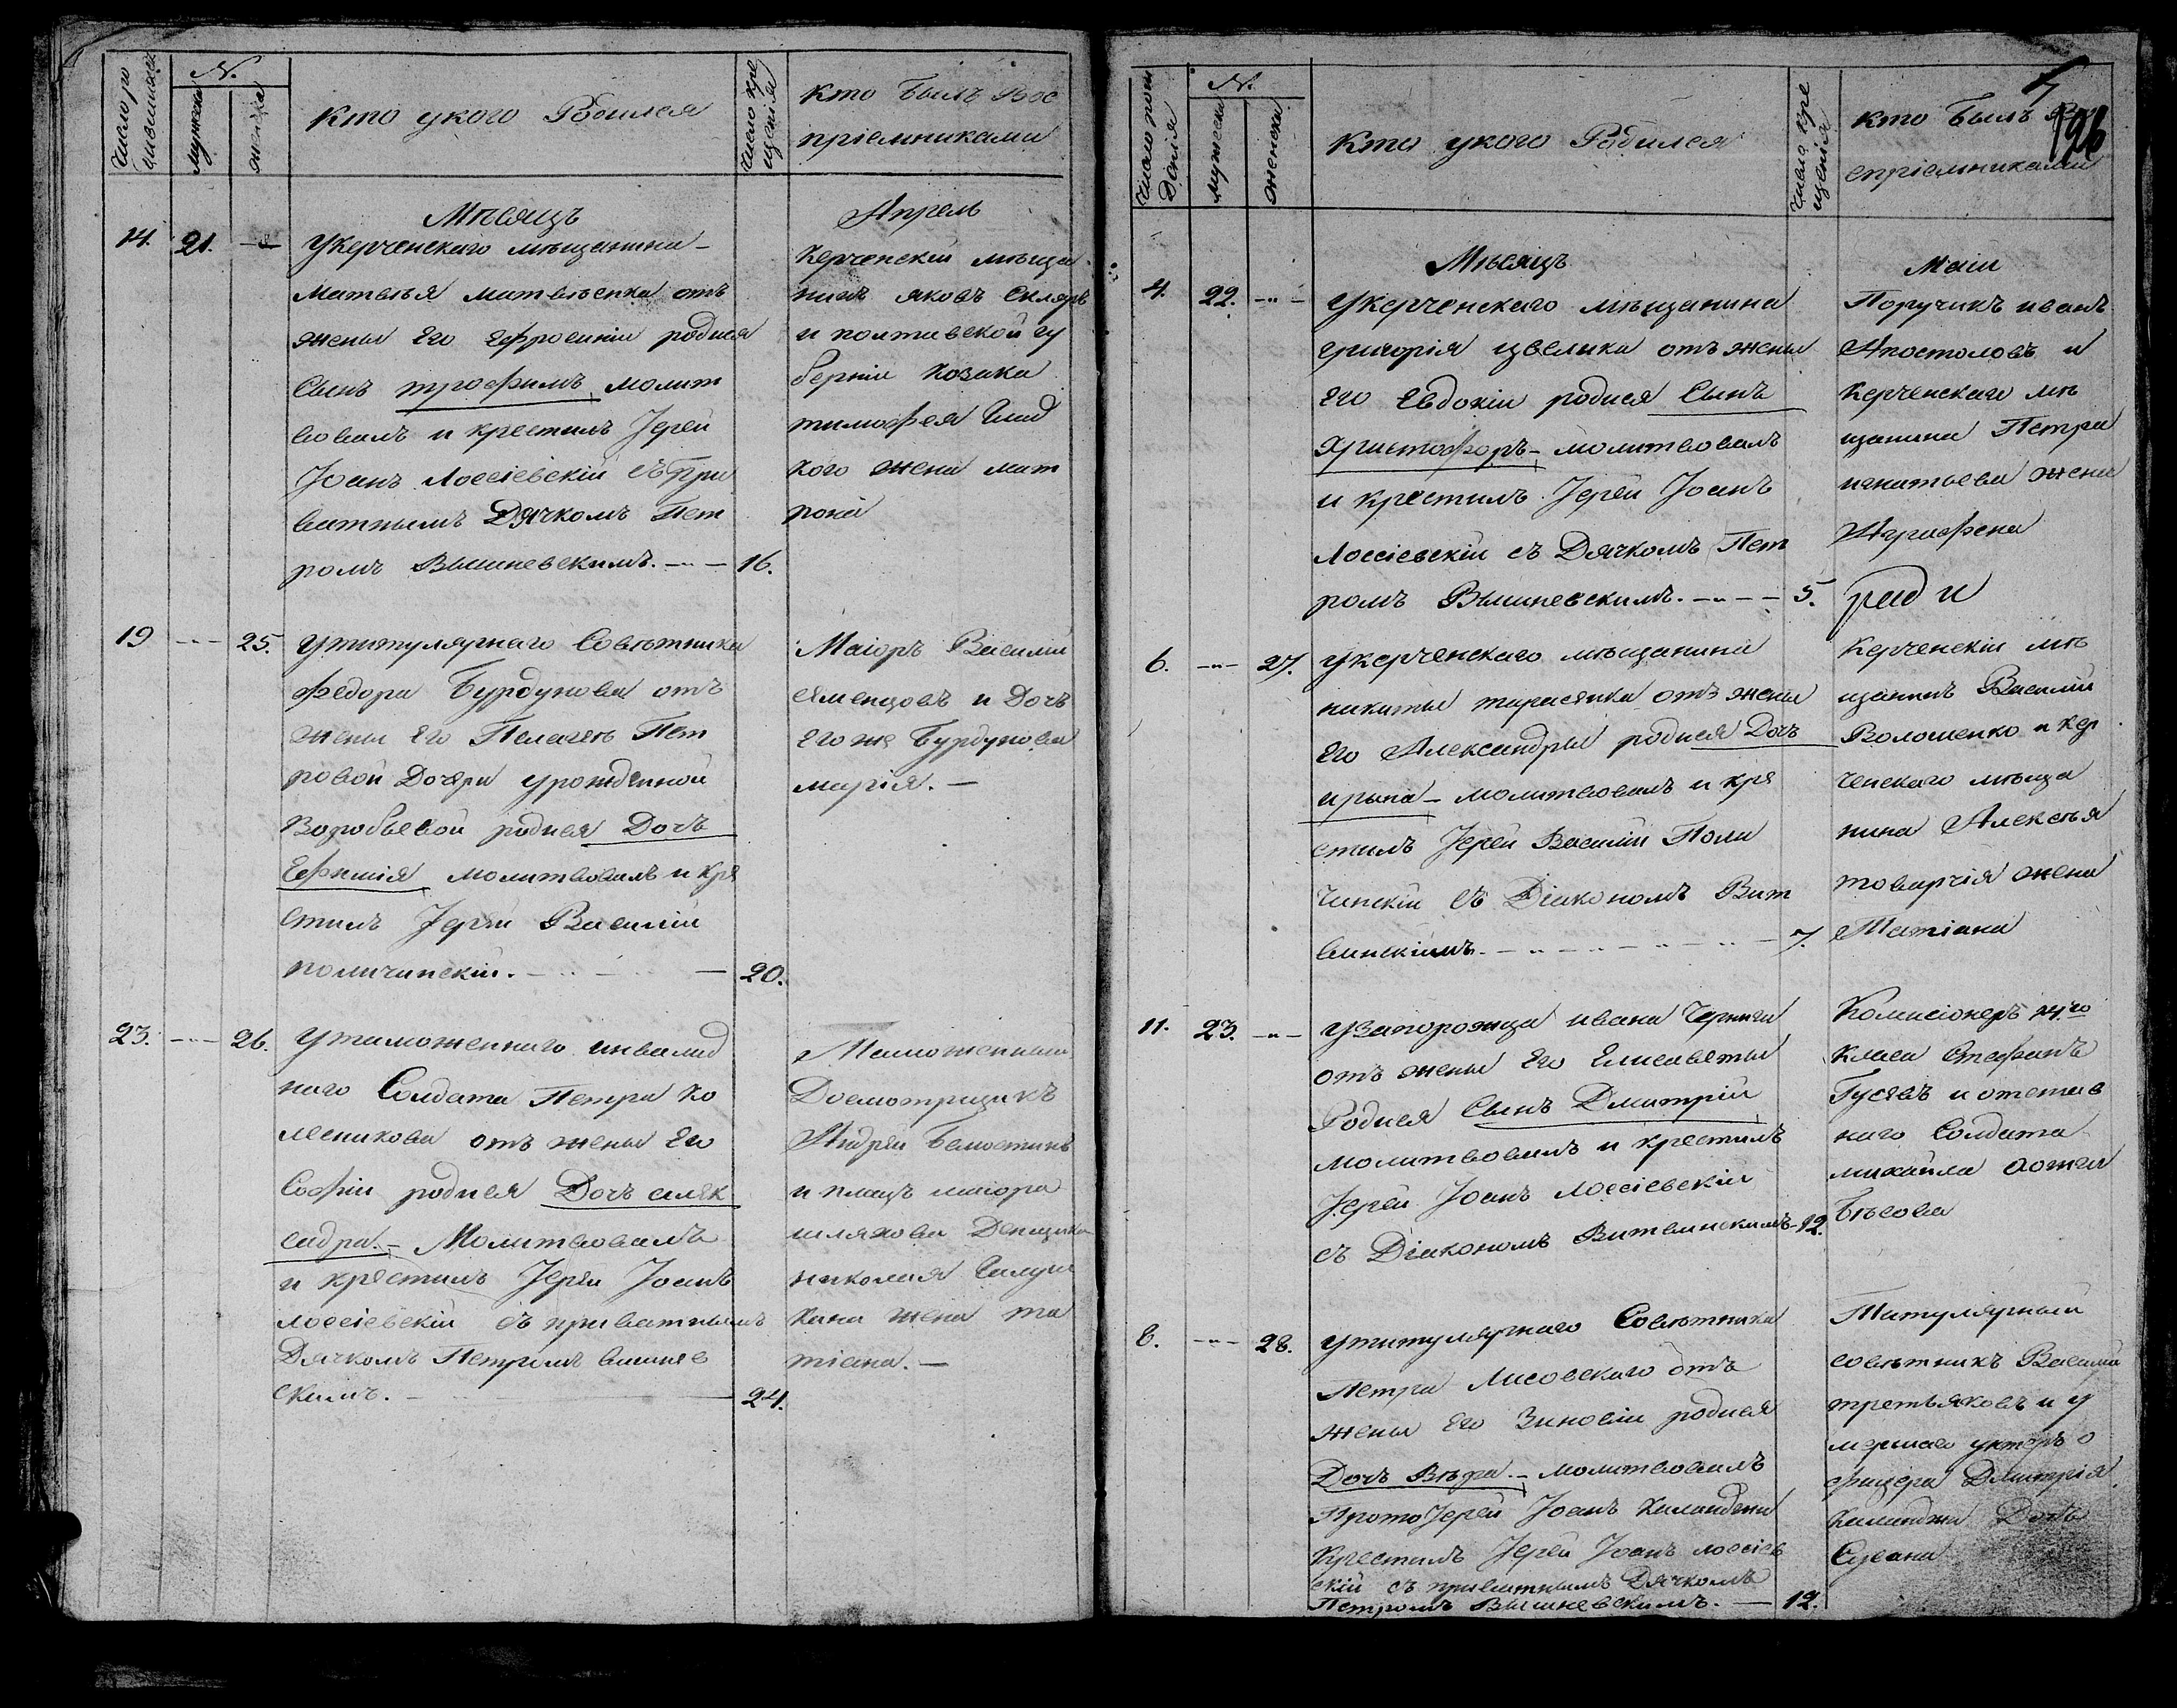 Число ро
дившихся
N.
мужеска
женска
Кто укого Родился
число кре
щенія
кто былъ вос
пріемниками
Мѣсяцъ
Апрель
14.
21.
Укерченскаго мѣщанина
Матвѣя Матвѣенка отъ
жены Его Ефросиніи родися
Сынъ трофимъ, молит
вовалъ и крестилъ Іерей
Іоанъ Лоссіевскій съ при
ватнымъ Дячкомъ Пет
ромъ Вышневскимъ.
16.
Керченскій мѣща
нинъ яковъ Скляръ
и полтавской гу
берніи козака
тимофея
кого жена мат
рона
19
25.
Утитулярнаго Совѣтника
Федора Бурдунова отъ
жены Его Пелагеѣ Пет
ровой Дочери урожденной
Воробьевой родися Дочъ
Ефимія молитвовалъ и кре
стилъ Іерей Василій
поличинскій.
20.
Маіоръ Василій
семенцовъ и Дочъ
Его же Бурдунова
марія.
23.
26.
Утаможеннаго инвалид
наго Солдата Петра Ко
лесникова отъ жены Его
Софіи родися Дочъ алек
садра. Молитвовалъ
и крестилъ Іерей Іоанъ
лоссіевскій съ приватнымъ
Дячкомъ Петромъ вышнев
скимъ.
24.
Таможенный
Досмотрщикъ
Андрей
и плацъ маіора
шляхова Денщика
николая
кина жена та
тіана.
5
196
Число рож
Денія
N.
мужеска
женска
Кто укого Родился
число кре
щенія
кто былъ во
спріемниками
Мѣсяцъ
Маій
4.
22.
Укерченскаго мѣщанина
григорія цвелыка отъ жены
Его Евдокіи родися Сынъ
Христофоръ молитвовалъ
и крестилъ Іерей Іоанъ
Лоссіевскій съ Дячкомъ Пет
ромъ Вышневскимъ.
5.
Поручикъ иванъ
Апостоловъ и
Керченскаго мѣ
щанина Петра
игнатьева жена
Агрифена
6.
27.
Укерченскаго мѣщанина
никиты тарасенка отъ жены
Его Александры родися Дочъ
ирына молитвовалъ и кре
стилъ Іерей Василій Поли
чинскій съ Діакономъ Вит
винскимъ.
7.
Керченскій мѣ
щанинъ Василій
Волошенко и кер
ченскаго мѣща
нина Алексѣя
товарчія жена
Татіана
11.
23.
Узапорожца ивана Черниги
отъ жены Его Елисаветы
Родися Сынъ Дмитрій
молитвовалъ и крестилъ
Іерей Іоанъ Лоссіевскій
съ Діакономъ Витвинскимъ
12.
Комисіонеръ 14.го
класа Стефанъ
Гусевъ и отстав
наго Солдата
михайла
8.
28.
Утитулярнаго Совѣтника
Петра Лисовскаго отъ
жены Его Зиновіи родися
Дочъ Вѣра. молитвовалъ
Протоіерей Іоанъ
Крестилъ Іерей Іоанъ лоссіев
скій съ приватнымъ Дячкомъ
Петромъ Вышневскимъ.
12.
Титулярный
совѣтникъ Василій
третьяковъ и у
мершаго унтеръ о
фицера Дмитрія
Дочъ
Сусана